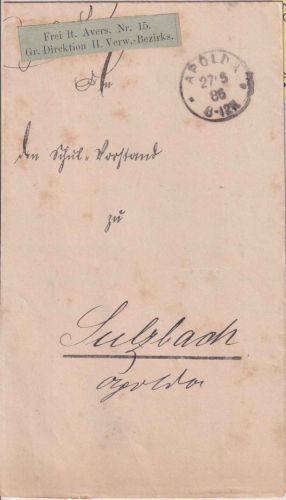 Frei lt. Avers. Nr. 15.
Gr. Direktion II. Verw.-Bezirks.
APOLDA
27 5
86
8-12V
An
den Schul-Vorstand
zu
Sulzbach
Apolda